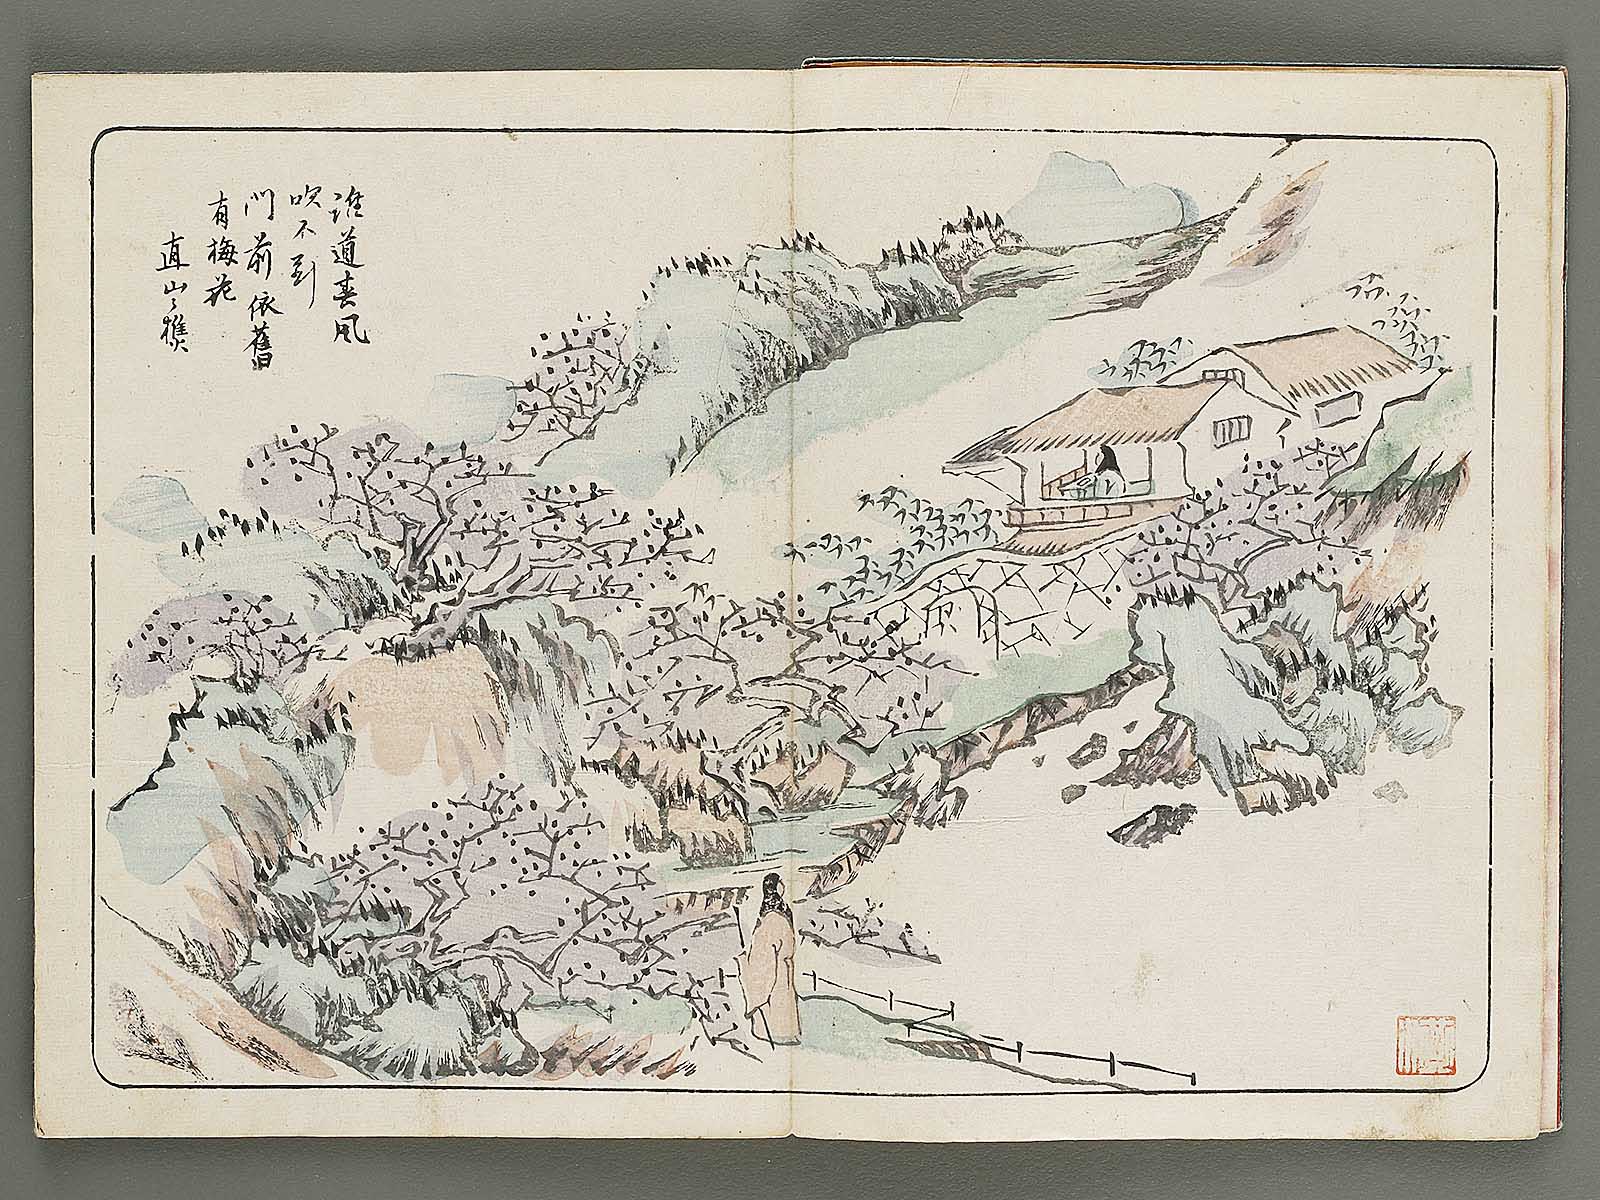 誰道春風
吹不到
門前依舊
有梅花
直山樵